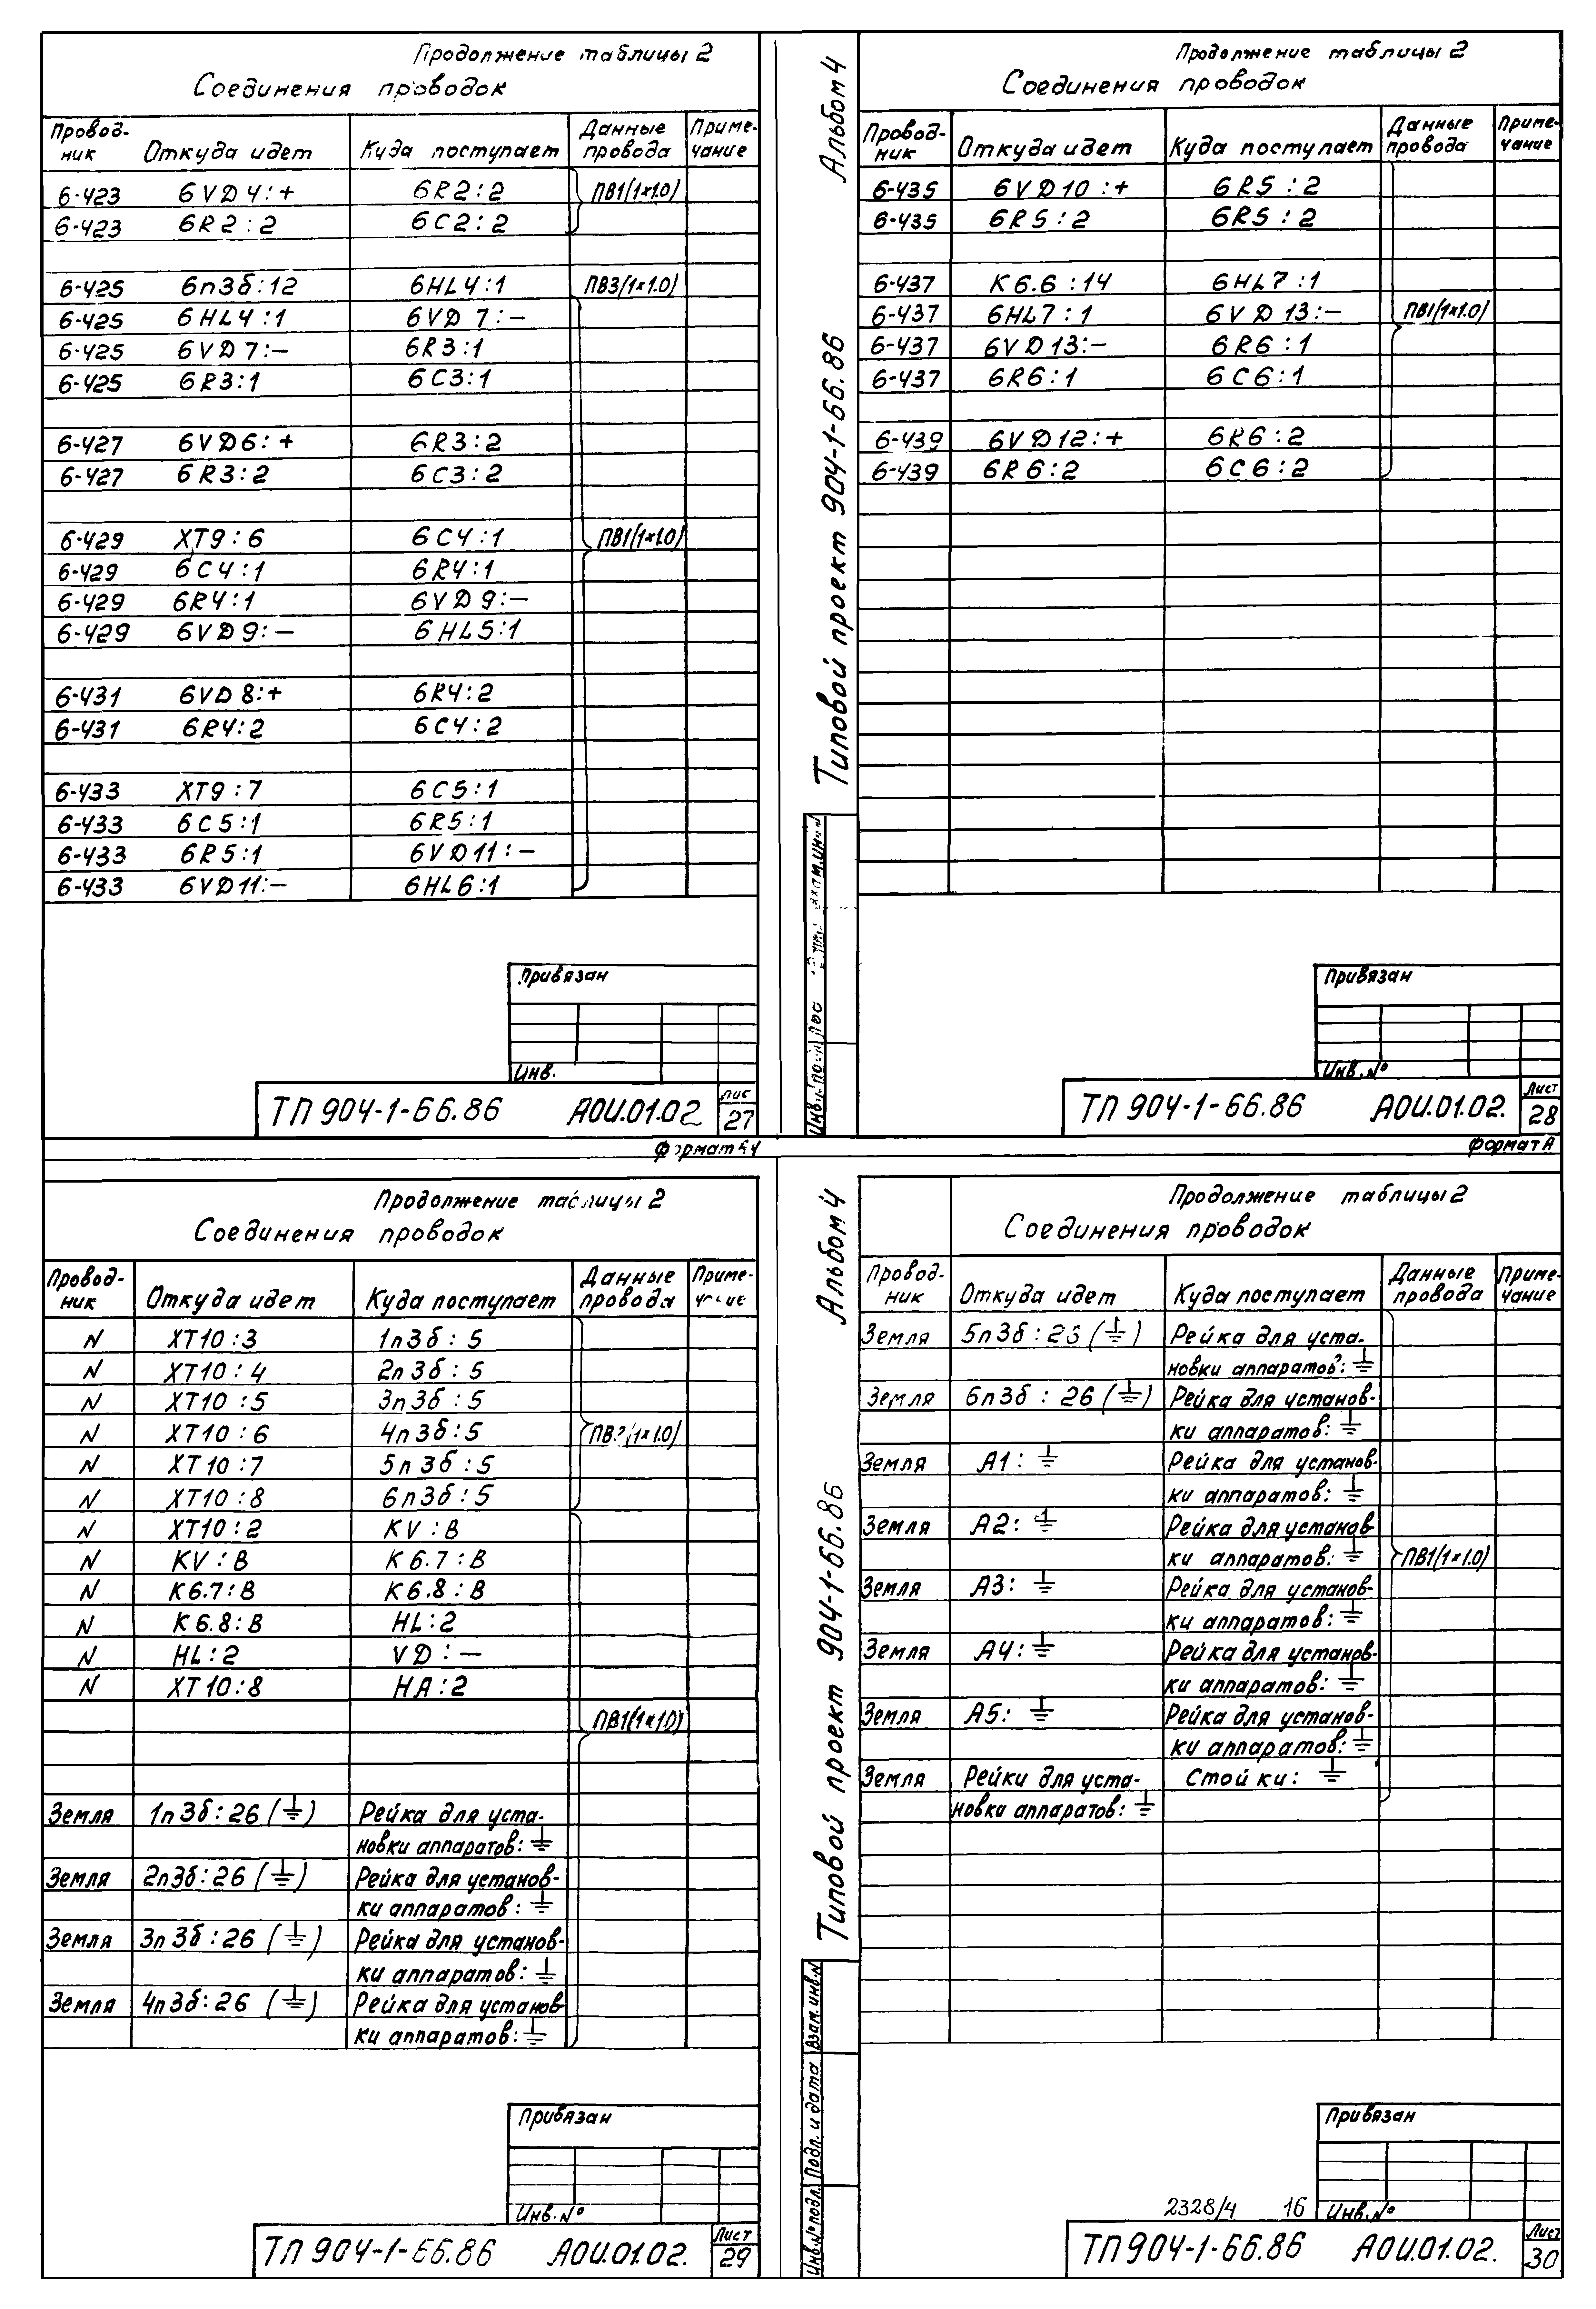 Продолжение таблицы 2
Соединения проводок
Провод-ник Откуда идет Куда поступает Данные провода Приме-чание
6-423 6VD4:+ 6R2:2 ПВ1(1×1.0)
6-423 6R2:2 6C2:2
6-425 6п3б:12 6HL4:1 ПВ3(1×1.0)
6-425 6HL4:1 6VD7:–
6-425 6VD7:– 6R3:1
6-425 6R3:1 6C3:1
6-427 6VD6:+ 6R3:2
6-427 6R3:2 6C3:2
6-429 XT9:6 6C4:1 ПВ1(1×1.0)
6-429 6C4:1 6R4:1
6-429 6R4:1 6VD9:–
6-429 6VD9:– 6HL5:1
6-431 6VD8:+ 6R4:2
6-431 6R4:2 6C4:2
6-433 XT9:7 6C5:1
6-433 6C5:1 6R5:1
6-433 6R5:1 6VD11:–
6-433 6VD11:– 6HL6:1
Привязан
Инв.
ТП 904-1-66.86 АОИ.01.02 лис 27
Альбом 4
Типовой проект 904-1-66.86
Продолжение таблицы 2
Соединения проводок
Провод-ник Откуда идет Куда поступает Данные провода Приме-чание
6-435 6VD10:+ 6R5:2
6-435 6R5:2 6R5:2
6-437 K6.6:14 6HL7:1
6-437 6HL7:1 6VD13:– ПВ1(1×1.0)
6-437 6VD13:– 6R6:1
6-437 6R6:1 6C6:1
6-439 6VD12:+ 6R6:2
6-439 6R6:2 6C6:2
Привязан
Инв.№
ТП 904-1-66.86 АОИ.01.02. Лист 28
Формат А
Продолжение таблицы 2
Соединения проводок
Провод-ник Откуда идет Куда поступает Данные провода Приме-
N XT10:3 1п3б:5
N XT10:4 2п3б:5
N XT10:5 3п3б:5
N XT10:6 4п3б:5
N XT10:7 5п3б:5
N XT10:8 6п3б:5
N XT10:2 KV:B
N KV:B K6.7:B
N K6.7:B K6.8:B
N K6.8:B HL:2
N HL:2 VD:–
N XT10:8 HA:2
ПВ1(1×1.0)
Земля 1п3б:26 (⏚) Рейка для уста-
новки аппаратов: ⏚
Земля 2п3б:26 (⏚) Рейка для установ-
ки аппаратов: ⏚
Земля 3п3б:26 (⏚) Рейка для установ-
ки аппаратов: ⏚
Земля 4п3б:26 (⏚) Рейка для установ
ки аппаратов: ⏚
Привязан
Инв.№
ТП 904-1-66.86 АОИ.01.02. Лист 29
Альбом 4
Типовой проект 904-1-66.86
Инв.№подл. Подп. и дата Взам.инв.N
Продолжение таблицы 2
Соединения проводок
Провод-ник Откуда идет Куда поступает Данные провода Приме-чание
Земля 5п3б:26 (⏚) Рейка для уста-
новки аппаратов: ⏚
Земля 6п3б:26 (⏚) Рейка для установ-
ки аппаратов: ⏚
Земля A1: ⏚ Рейка для установ-
ки аппаратов: ⏚
Земля A2: ⏚ Рейка для установ
ки аппаратов: ⏚ ПВ1(1×1.0)
Земля A3: ⏚ Рейка для установ-
ки аппаратов: ⏚
Земля A4: ⏚ Рейка для установ-
ки аппаратов: ⏚
Земля A5: ⏚ Рейка для установ-
ки аппаратов: ⏚
Земля Рейки для уста- Стойки: ⏚
новки аппаратов: ⏚
Привязан
2328/4 16 Инв.№
ТП 904-1-66.86 АОИ.01.02. Лист 30